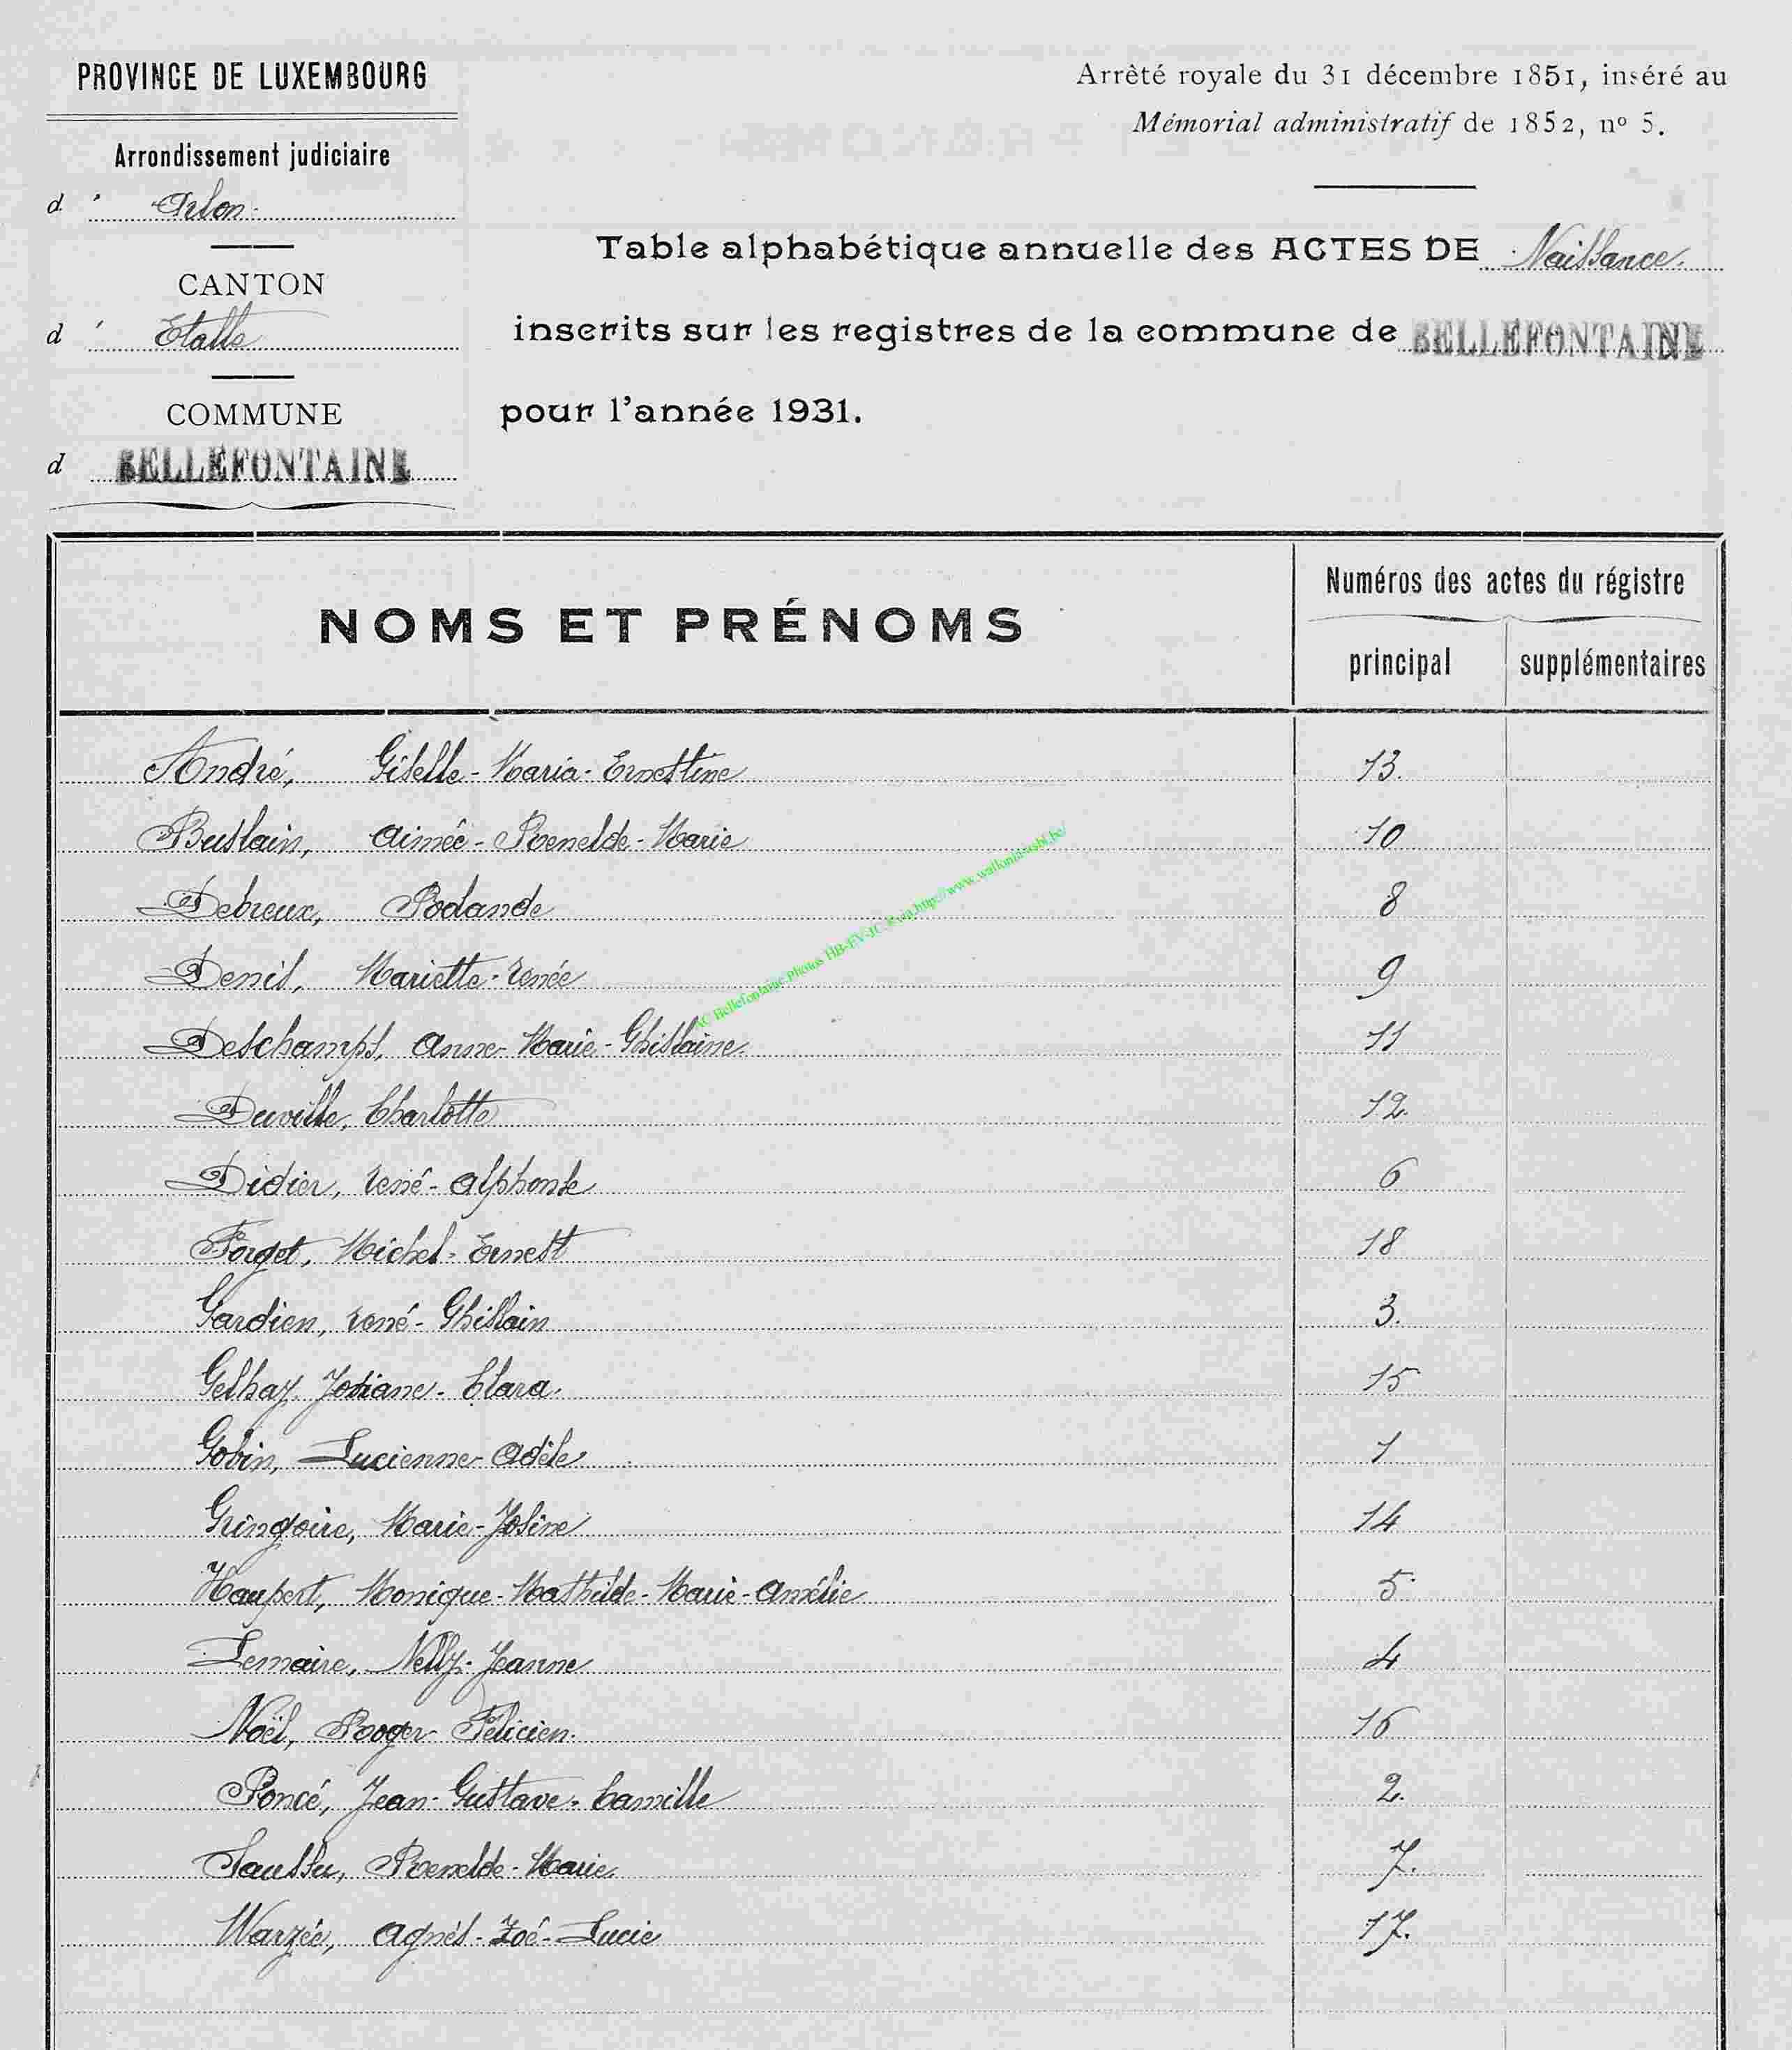 PROVINCE DE LUXEMBOURG
Arrondissement judiciaire
d' Arlon
CANTON
d' Etalle
COMMUNE
d BELLEFONTAINE
Arrêté royale du 31 décembre 1851, inséré au
Mémorial administratif de 1852, nº 5.
Table alphabétique annuelle des ACTES DE Naissance.
inscrits sur les registres de la commune de BELLEFONTAINE
pour l'année 1931.
NOMS ET PRÉNOMS
Numéros des actes du régistre
principal supplémentaires
André, Giselle-Maria-Ernestine 13.
Buslain, Aimée-Renelde-Marie 10
Debreux, Rodande 8
Denis, Mariette-Renée 9
Deschamps, Anne-Marie-Ghislaine. 11
Deville, Charlotte 12.
Didier, René-Alphonse 6
Forget, Michel-Ernest 18
Gardien, René-Ghislain 3.
Gelhay, Josiane-Clara. 15
Gobin, Lucienne-Adèle 1
Gringoire, Marie-Josine 14
Haupert, Monique-Mathilde-Marie-Amélie 5
Lemaire, Nelly-Jeanne 4
Noël, Roger-Félicien. 16
Poncé, Jean-Gustave-Camille 2.
Saussu, Renelde-Marie. 7.
Warzée, Agnès-Zoé-Lucie 17.
AC Bellefontaine Photos HB-FV-JC-R via http://www.wallonia-asbl.be/